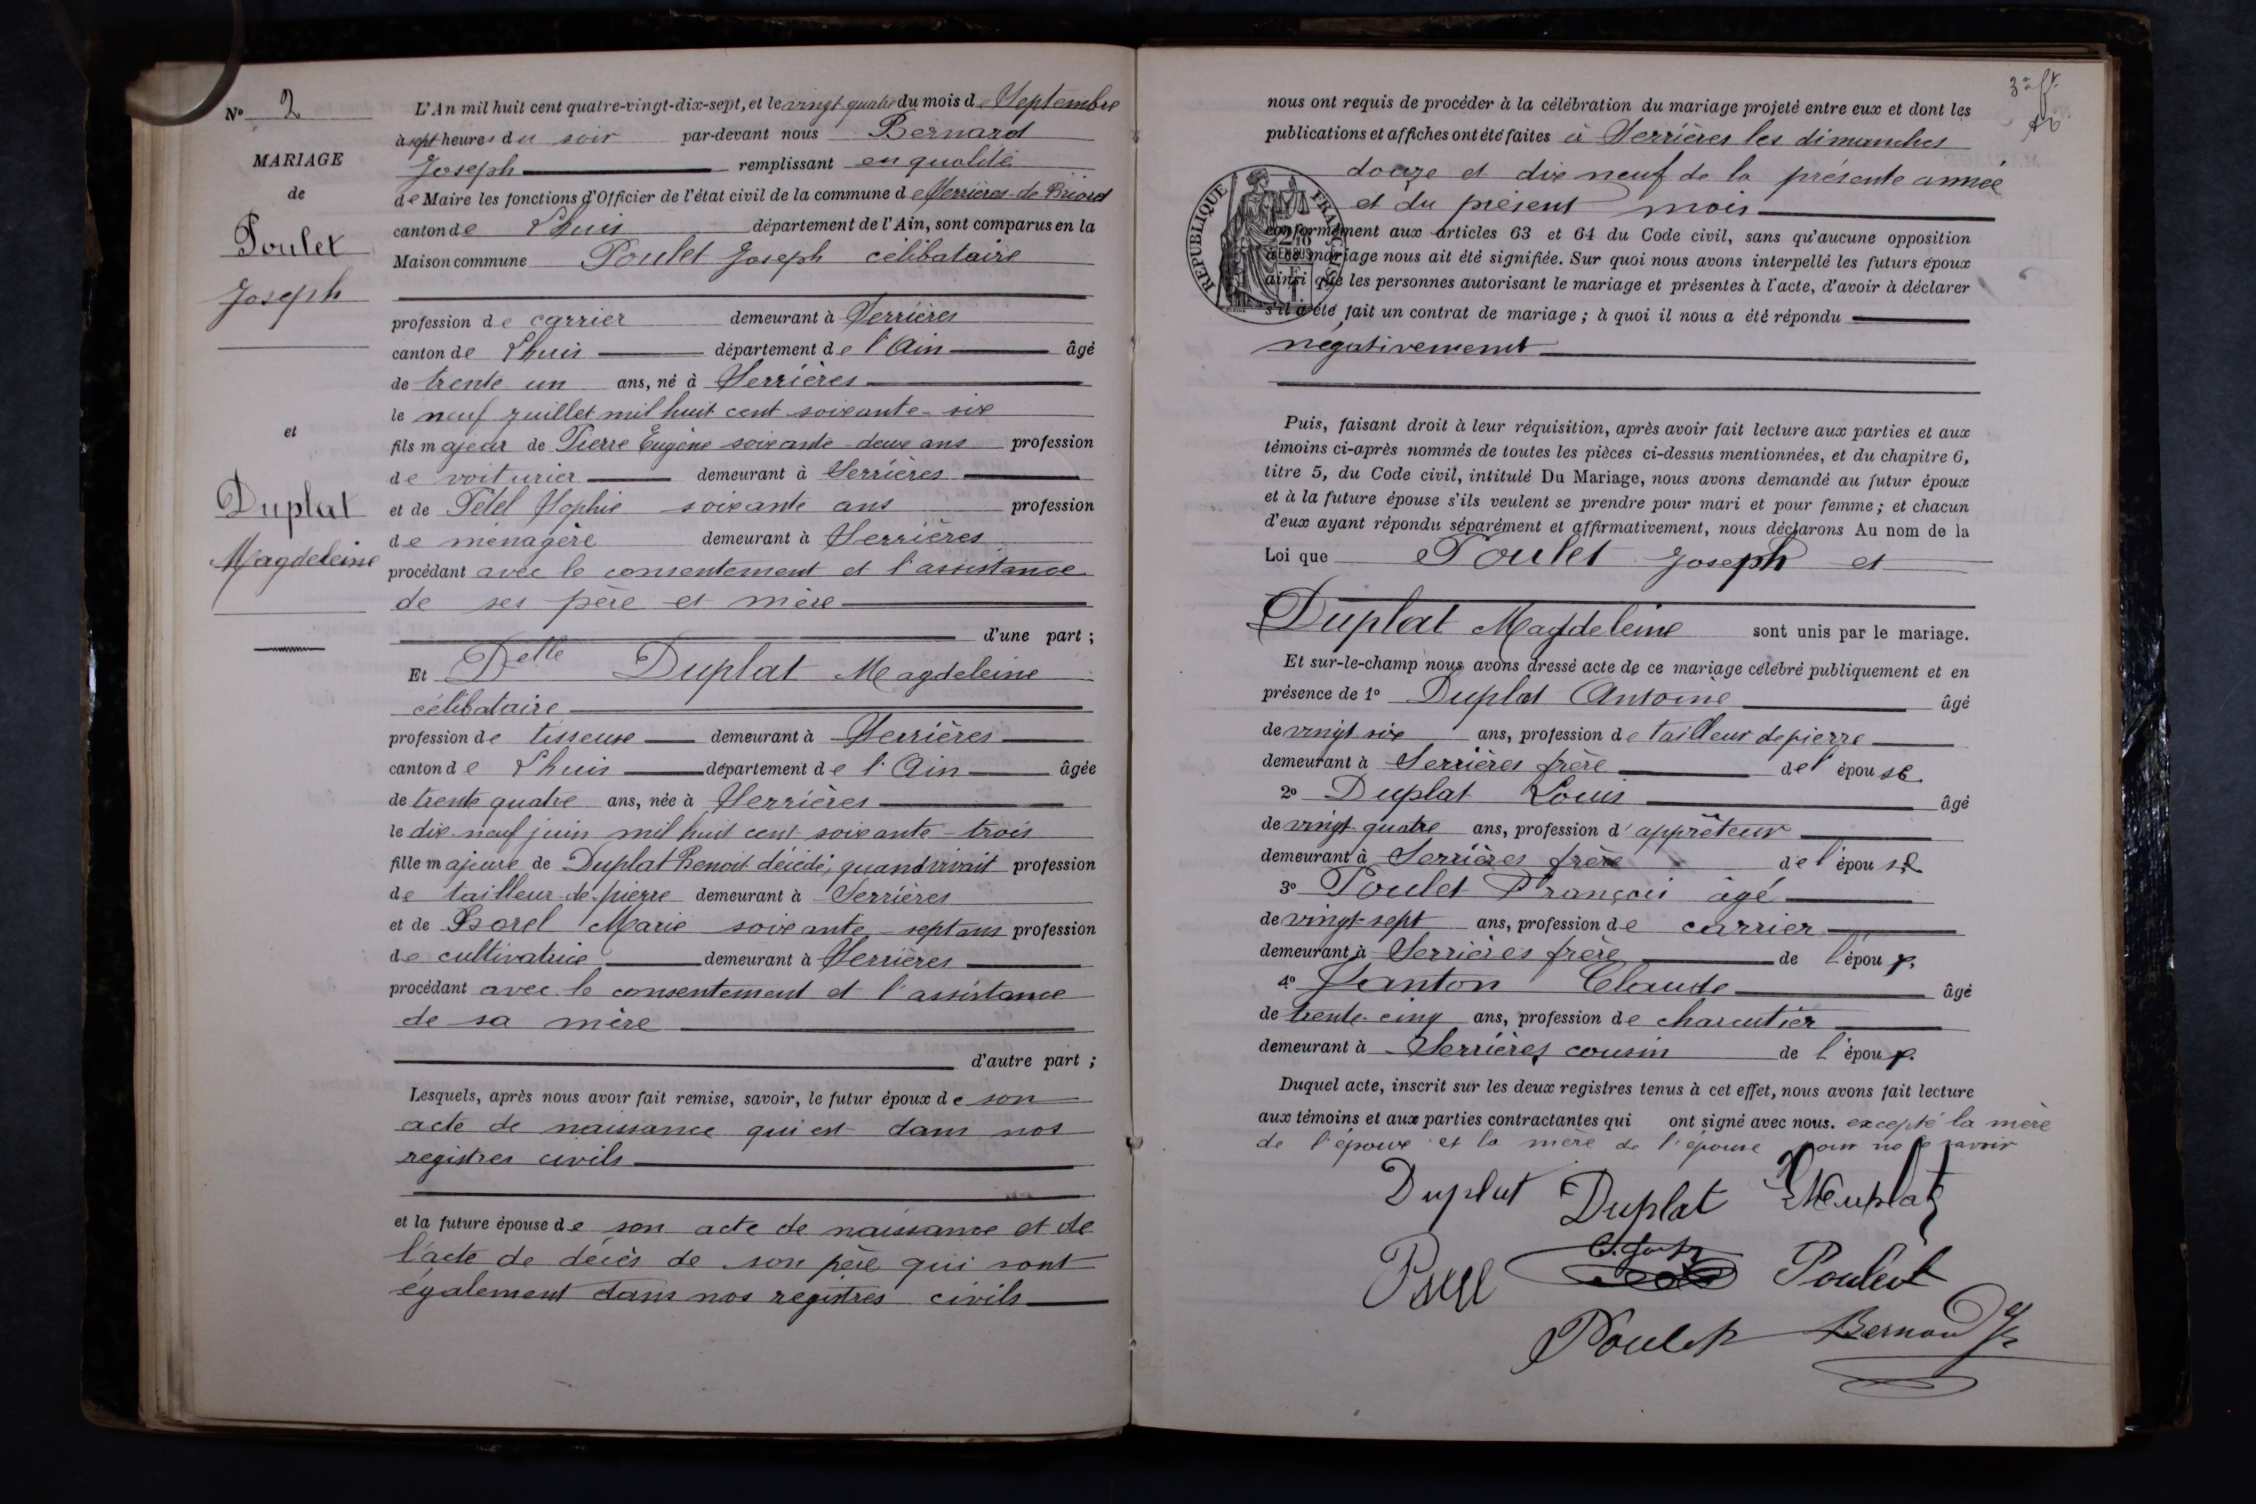 No 2
MARIAGE
de
Poulet
Joseph
et
Duplat
Magdeleine
L'An mil huit cent quatre-vingt-dix-sept, et le vingt quatre du mois de Septembre
à sept heures du soir par-devant nous Bernard
Joseph remplissant en qualité
de Maire les fonctions d'Officier de l'état civil de la commune de Serrières-de-Briord
canton de Lhuis département de l'Ain, sont comparus en la
Maison commune Poulet Joseph célibataire
profession de carrier demeurant à Serrières
canton de Lhuis département de l'Ain âgé
de trente un ans, né à Serrières
le neuf juillet mil huit cent soixante-six
fils majeur de Pierre Eugène soixante-deux ans profession
de voiturier demeurant à Serrières
et de Petel Sophie soixante ans profession
de ménagère demeurant à Serrières
procédant avec le consentement et l'assistance
de ses père et mère
d'une part ;
Et Delle Duplat Magdeleine
célibataire
profession de tisseuse demeurant à Serrières
canton de Lhuis département de l'Ain âgée
de trente quatre ans, née à Serrières
le dix-neuf juin mil huit cent soixante-trois
fille majeure de Duplat Benoit décédé, quand vivait profession
de tailleur-de-pierre demeurant à Serrières
et de Borel Marie soixante-sept ans profession
de cultivatrice demeurant à Serrières
procédant avec le consentement et l'assistance
de sa mère
d'autre part ;
Lesquels, après nous avoir fait remise, savoir, le futur époux de son
acte de naissance qui est dans nos
registres civils
et la future épouse de son acte de naissance et de
l'acte de décès de son père qui sont
également dans nos registres civils
nous ont requis de procéder à la célébration du mariage projeté entre eux et dont les
publications et affiches ont été faites à Serrières les dimanches
douze et dix neuf de la présente année
et du présent mois
RÉPUBLIQUE FRANÇAISE
conformément aux articles 63 et 64 du Code civil, sans qu'aucune opposition
à ce mariage nous ait été signifiée. Sur quoi nous avons interpellé les futurs époux
ainsi que les personnes autorisant le mariage et présentes à l'acte, d'avoir à déclarer
s'il a été fait un contrat de mariage ; à quoi il nous a été répondu
négativement
Puis, faisant droit à leur réquisition, après avoir fait lecture aux parties et aux
témoins ci-après nommés de toutes les pièces ci-dessus mentionnées, et du chapitre 6,
titre 5, du Code civil, intitulé Du Mariage, nous avons demandé au futur époux
et à la future épouse s'ils veulent se prendre pour mari et pour femme ; et chacun
d'eux ayant répondu séparément et affirmativement, nous déclarons Au nom de la
Loi que Poulet Joseph et
Duplat Magdeleine sont unis par le mariage.
Et sur-le-champ nous avons dressé acte de ce mariage célébré publiquement et en
présence de 1o Duplat Antoine âgé
de vingt six ans, profession de tailleur de pierre
demeurant à Serrières frère de l'épouse
2o Duplat Louis âgé
de vingt-quatre ans, profession d'apprêteur
demeurant à Serrières frère de l'épouse
3o Poulet François âgé
de vingt-sept ans, profession de carrier
demeurant à Serrières frère de l'époux
4o Claude âgé
de trente-cinq ans, profession de charcutier
demeurant à Serrières cousin de l'époux
Duquel acte, inscrit sur les deux registres tenus à cet effet, nous avons fait lecture
aux témoins et aux parties contractantes qui ont signé avec nous. excepté la mère
de l'époux et la mère de l'épouse pour ne le savoir
Duplat Duplat Duplat
Poulet
Poulet Bernard